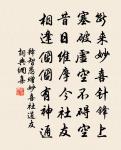 斷來妙喜針鋒上
塞破虛空不碍空
昔日維摩今社友
相逢個個有神通
釋智愚贈妙喜社道友
詞典網集